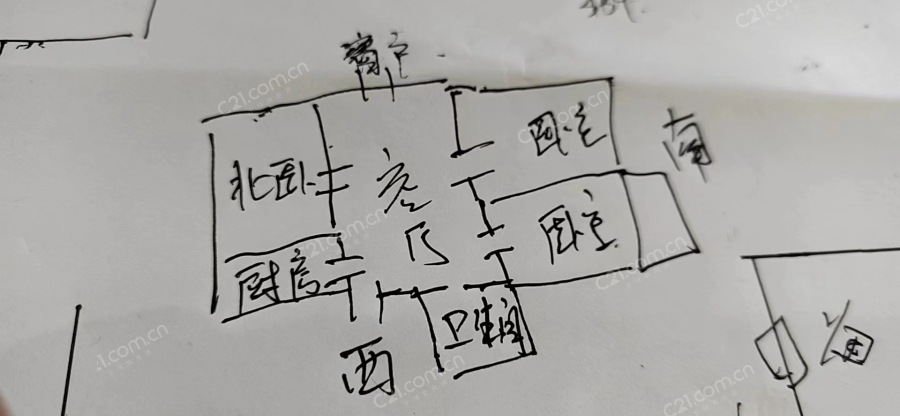 C21.com.cn
窗户
C21.com.cn
C21.com.cn
C21.com.cn
北卧
客
厅
卧室
南
厨房
卧室
卫生间
西
C21.com.cn
C21.com.cn
C21.com.cn
C21.com.cn
C21.com.cn